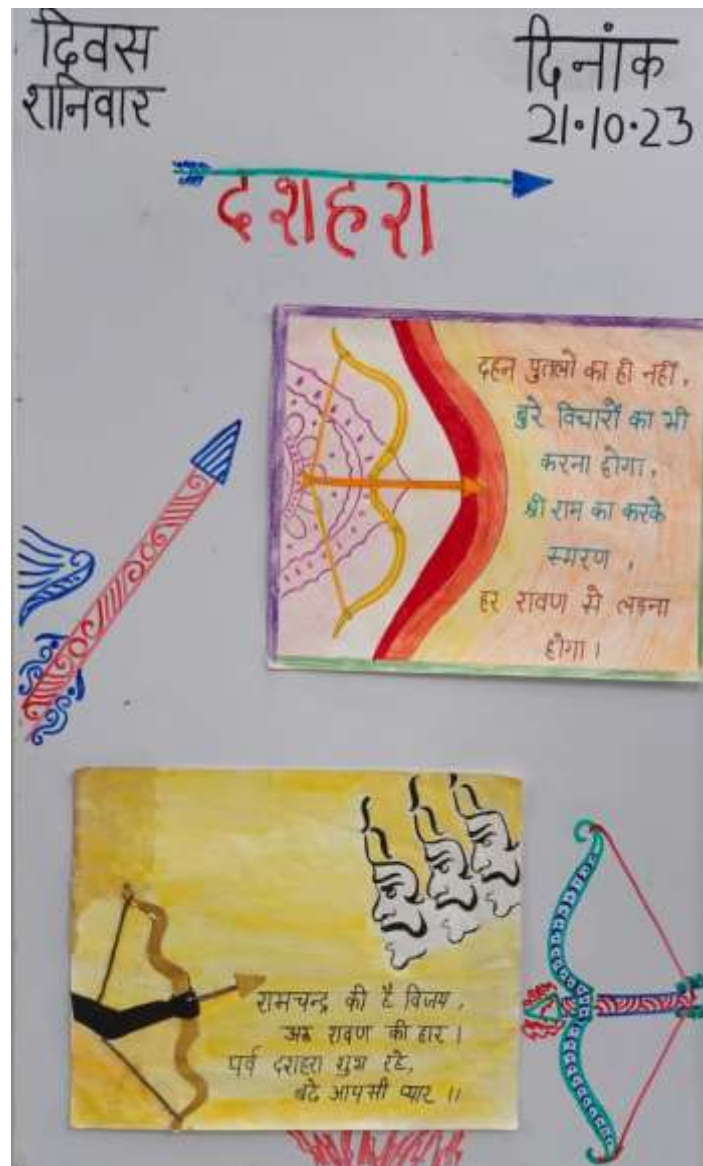 दिवस
शनिवार
दिनांक
21.10.23
दशहरा
दहन पुतलो का ही नहीं,
बुरे विचारों का भी
करना होगा,
श्री राम का करके
स्मरण ,
हर रावण से लड़ना
होगा।
रामचन्द्र की है विजय,
अरु रावण की हार।
पर्व दशहरा शुभ रहे,
बढे आपसी प्यार ।।